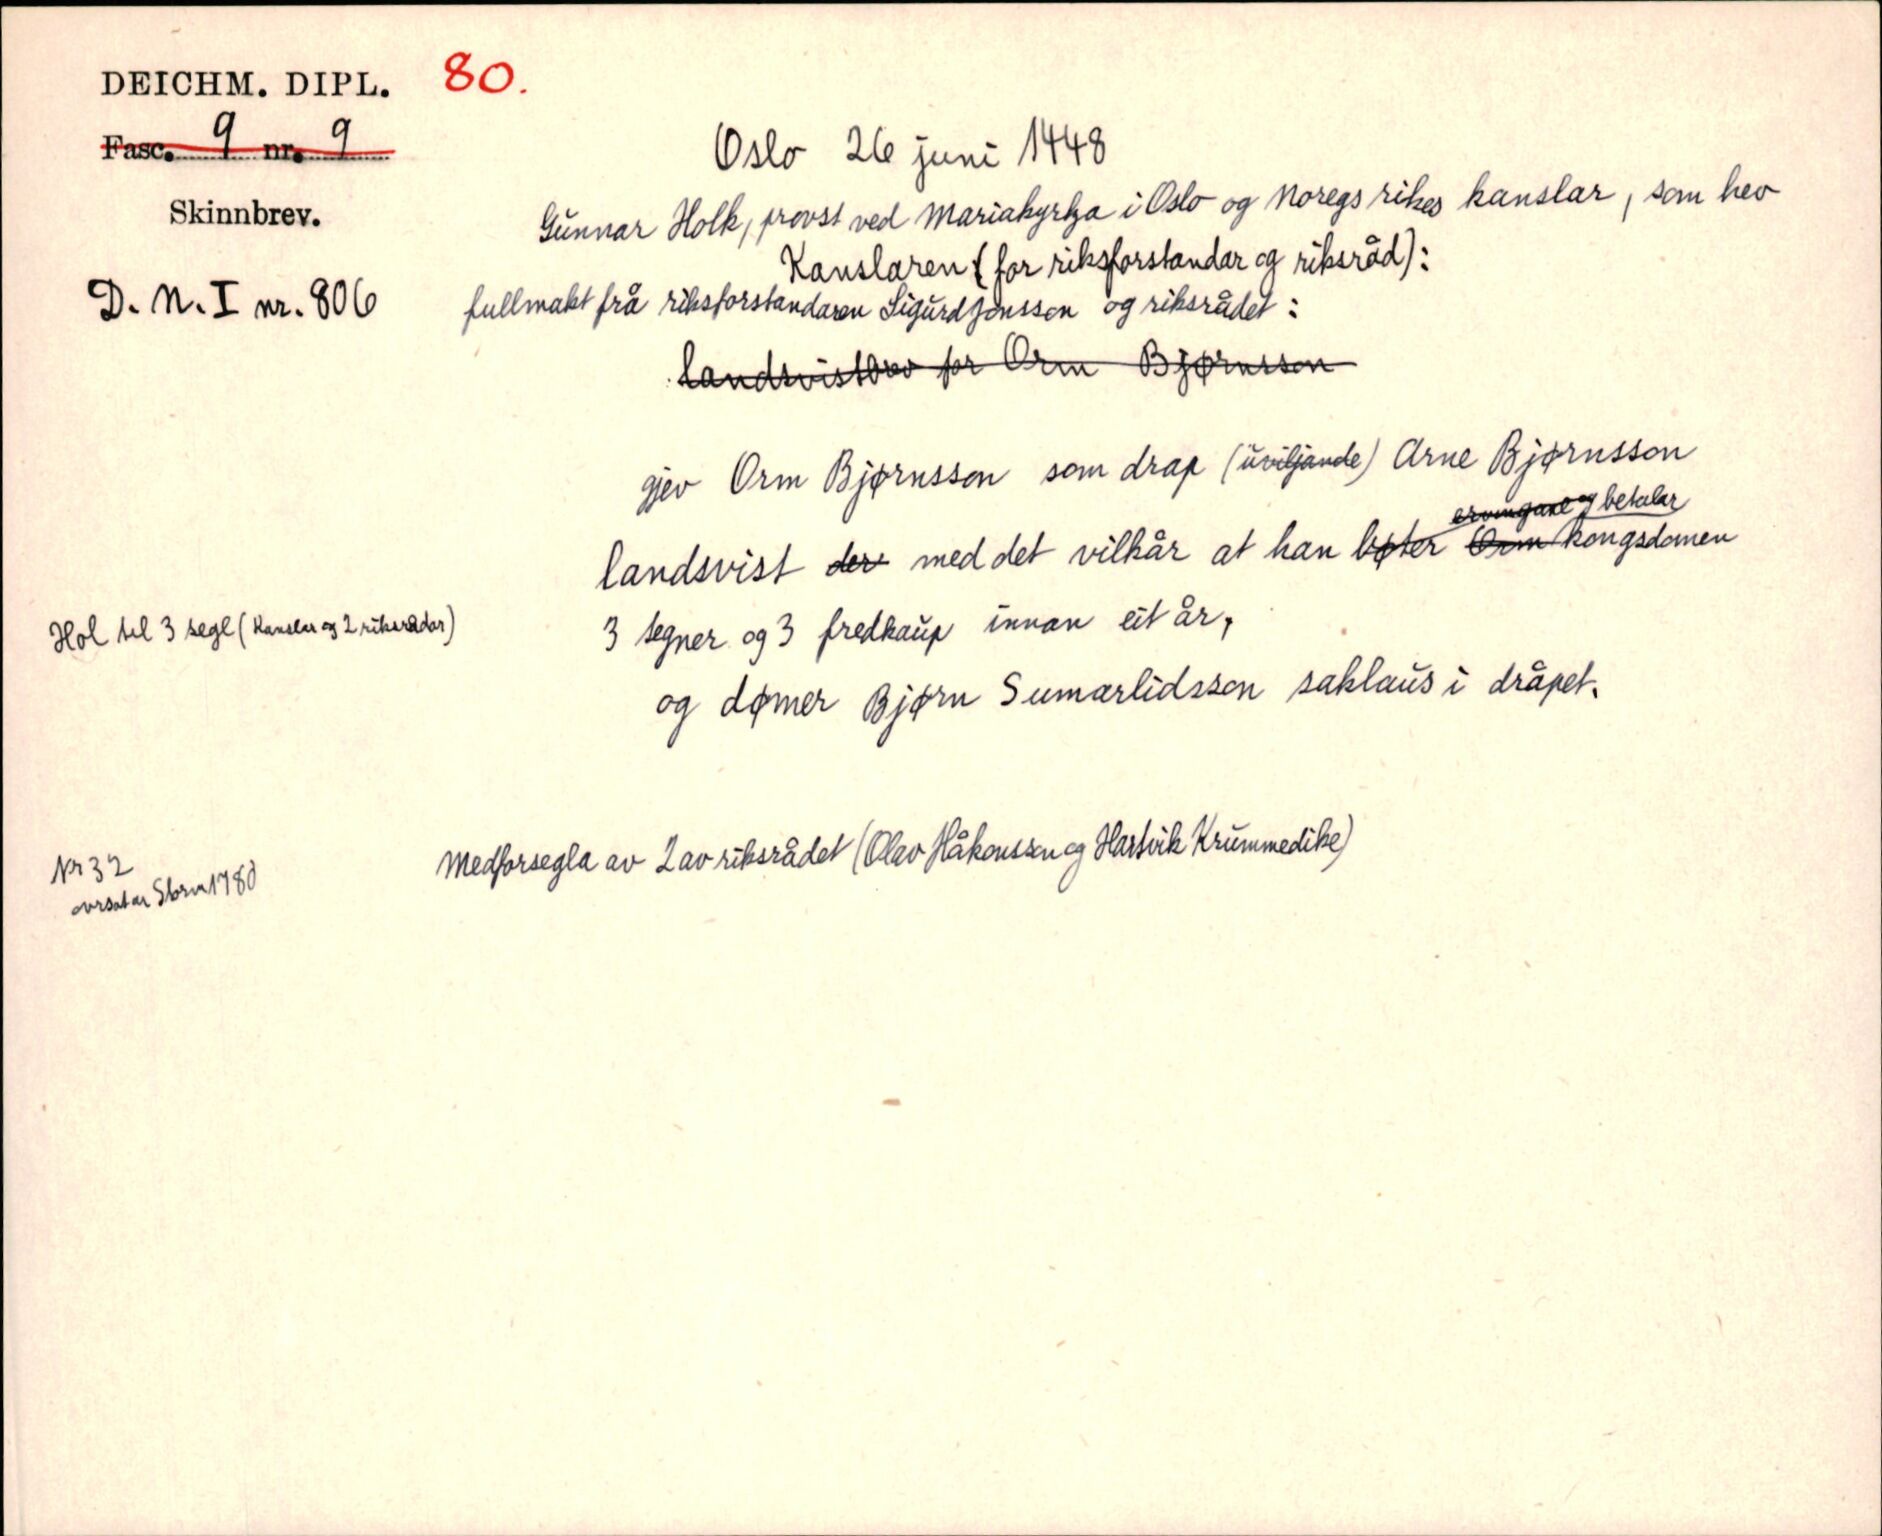 DEICHM. DIPL. 80.
Fasc. 9 nr. 9
Skinnbrev.
D. N. I nr. 806
Oslo 26 juni 1448
Gunnar Holk, provst ved Mariakyrkja i Oslo og Noregs rikes kanslar, som hev
Kanslaren (for riksforstandar og riksråd):
fullmakt frå riksforstandaren Sigurd Jonsson og riksrådet:
Landsvistbrev for Orm Bjørnsson
gjev Orm Bjørnsson som drap (uviljande) Arne Bjørnsson
ervingane og betalar
landsvist der med det vilkår at han bøter Orm kongsdomen
Hol til 3 segl (Kanslar og 2 riksrådar)
3 tegner og 3 fredkaup innan eit år,
og dømer Bjørn Sumarlidsson saklaus i dråpet.
Medforsegla av 2 av riksrådet (Olav Håkonsson og Hartvik Krummedike)
Nr 32
Storm 1780